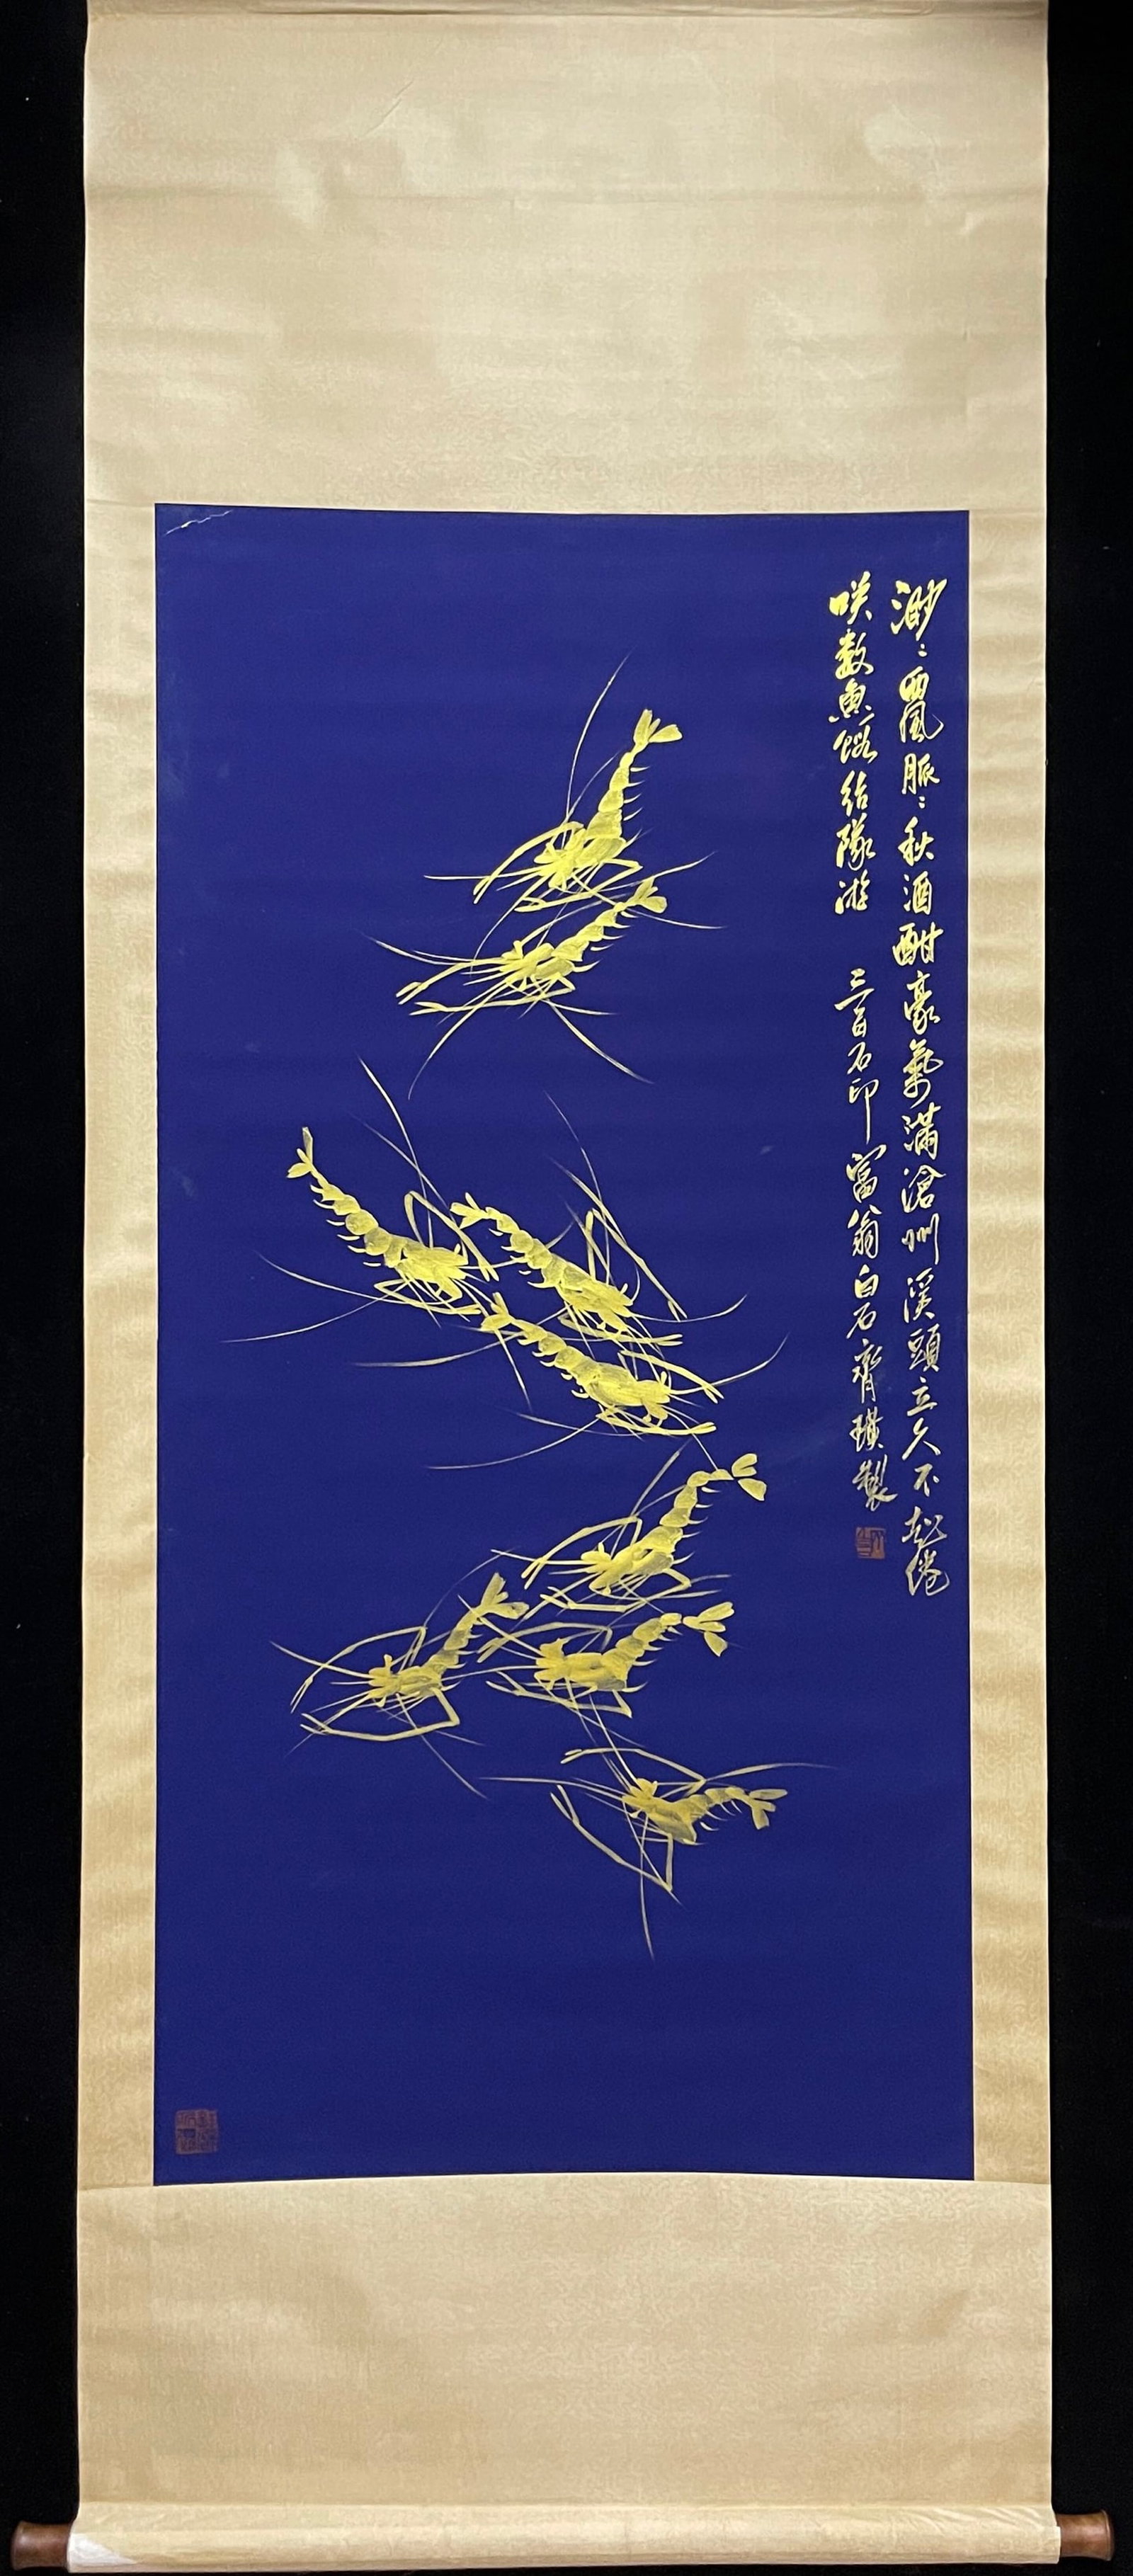 渺〻西風脈〻秋酒酣豪氣滿滄州溪頭立久不知倦
咲数魚蝦結隊游 三百石印富翁白石齊璜製